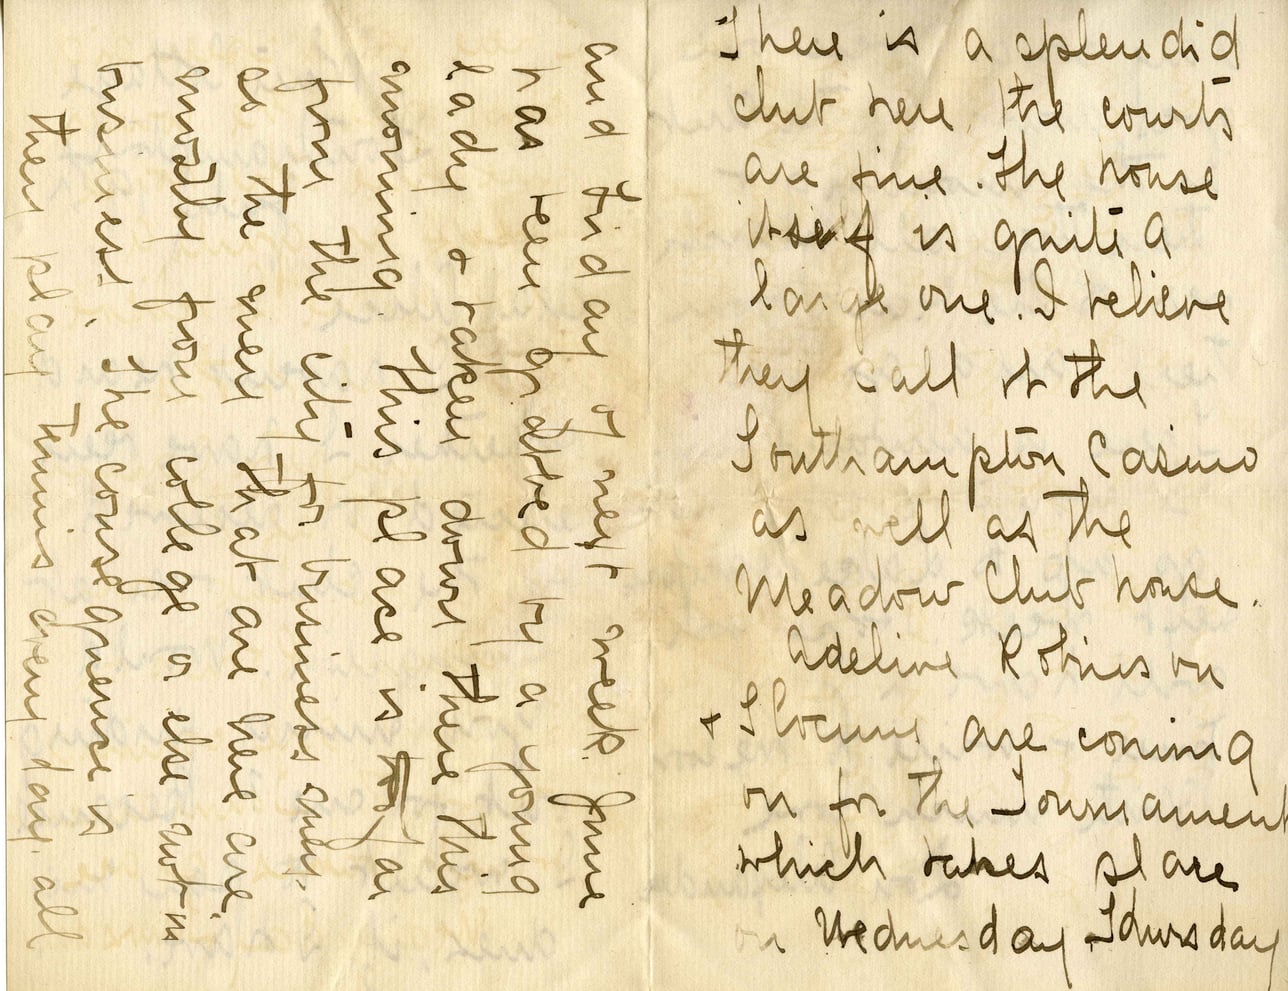 There is a splendid
club here, the courts
are fine. The house
itself is quite a
large one. I believe
they call it the
Southampton Casino
as well as the
Meadow Club house.
Adeline Robinson
+ Slocum are coming
on for the Tournament
which takes place
on Wednesday, Thursday
and Friday of next week.
has been grabbed by a young
lady & taken down there this
morning. This place is too far
from the city for business men.
so the men that are here are
mostly from college or else not in
business. The consequence is
they play tennis every day. all